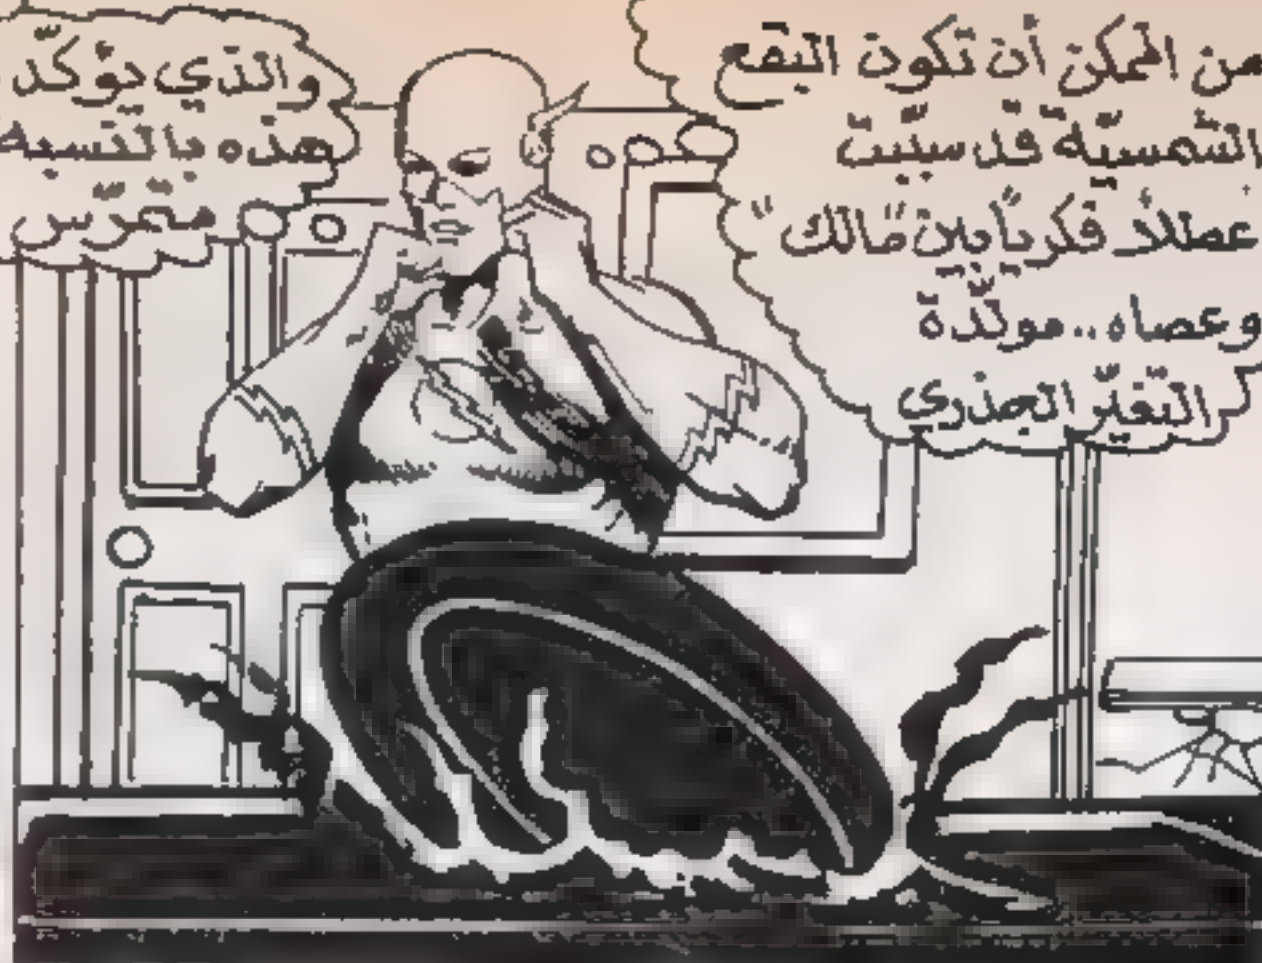 من الممكن أن تكون البقع
الشمسيّة قد سبّبت
عطلاً فكرياً بين "مالك"
وعصاه.. مولّدة
التغيّر الجذري
والذي يؤكّد
هذه بالنسبة